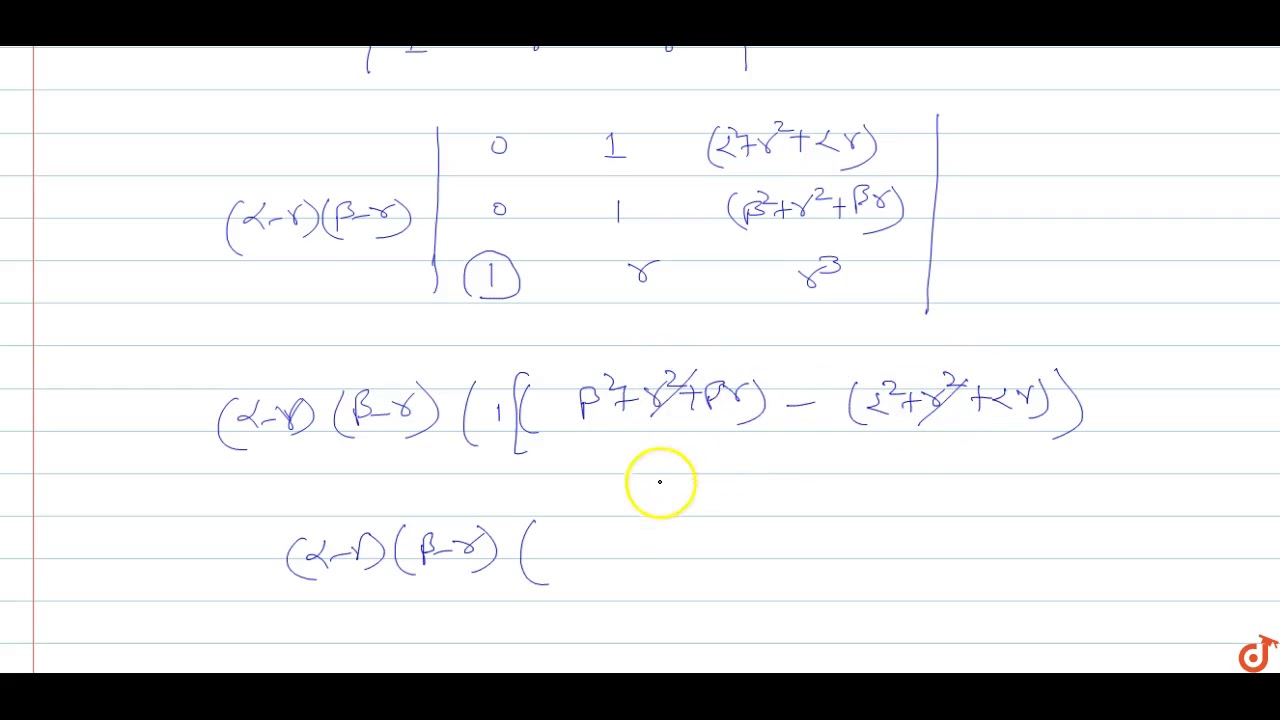 0 1 (α²+γ²+αγ)
(α-γ)(β-γ) 0 1 (β²+γ²+βγ)
1 γ γ³
(α-γ) (β-γ) (1[(β²+γ²+βγ) - (α²+γ²+αγ))
(α-γ)(β-γ) (